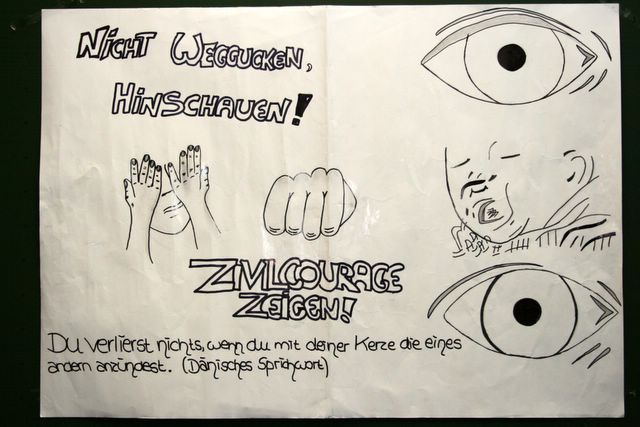 NICHT WEGGUCKEN,
HINSCHAUEN!
ZIVILCOURAGE
ZEIGEN!
Du verlierst nichts, wenn du mit deiner Kerze die eines
andern anzündest. (Dänisches Sprichwort)